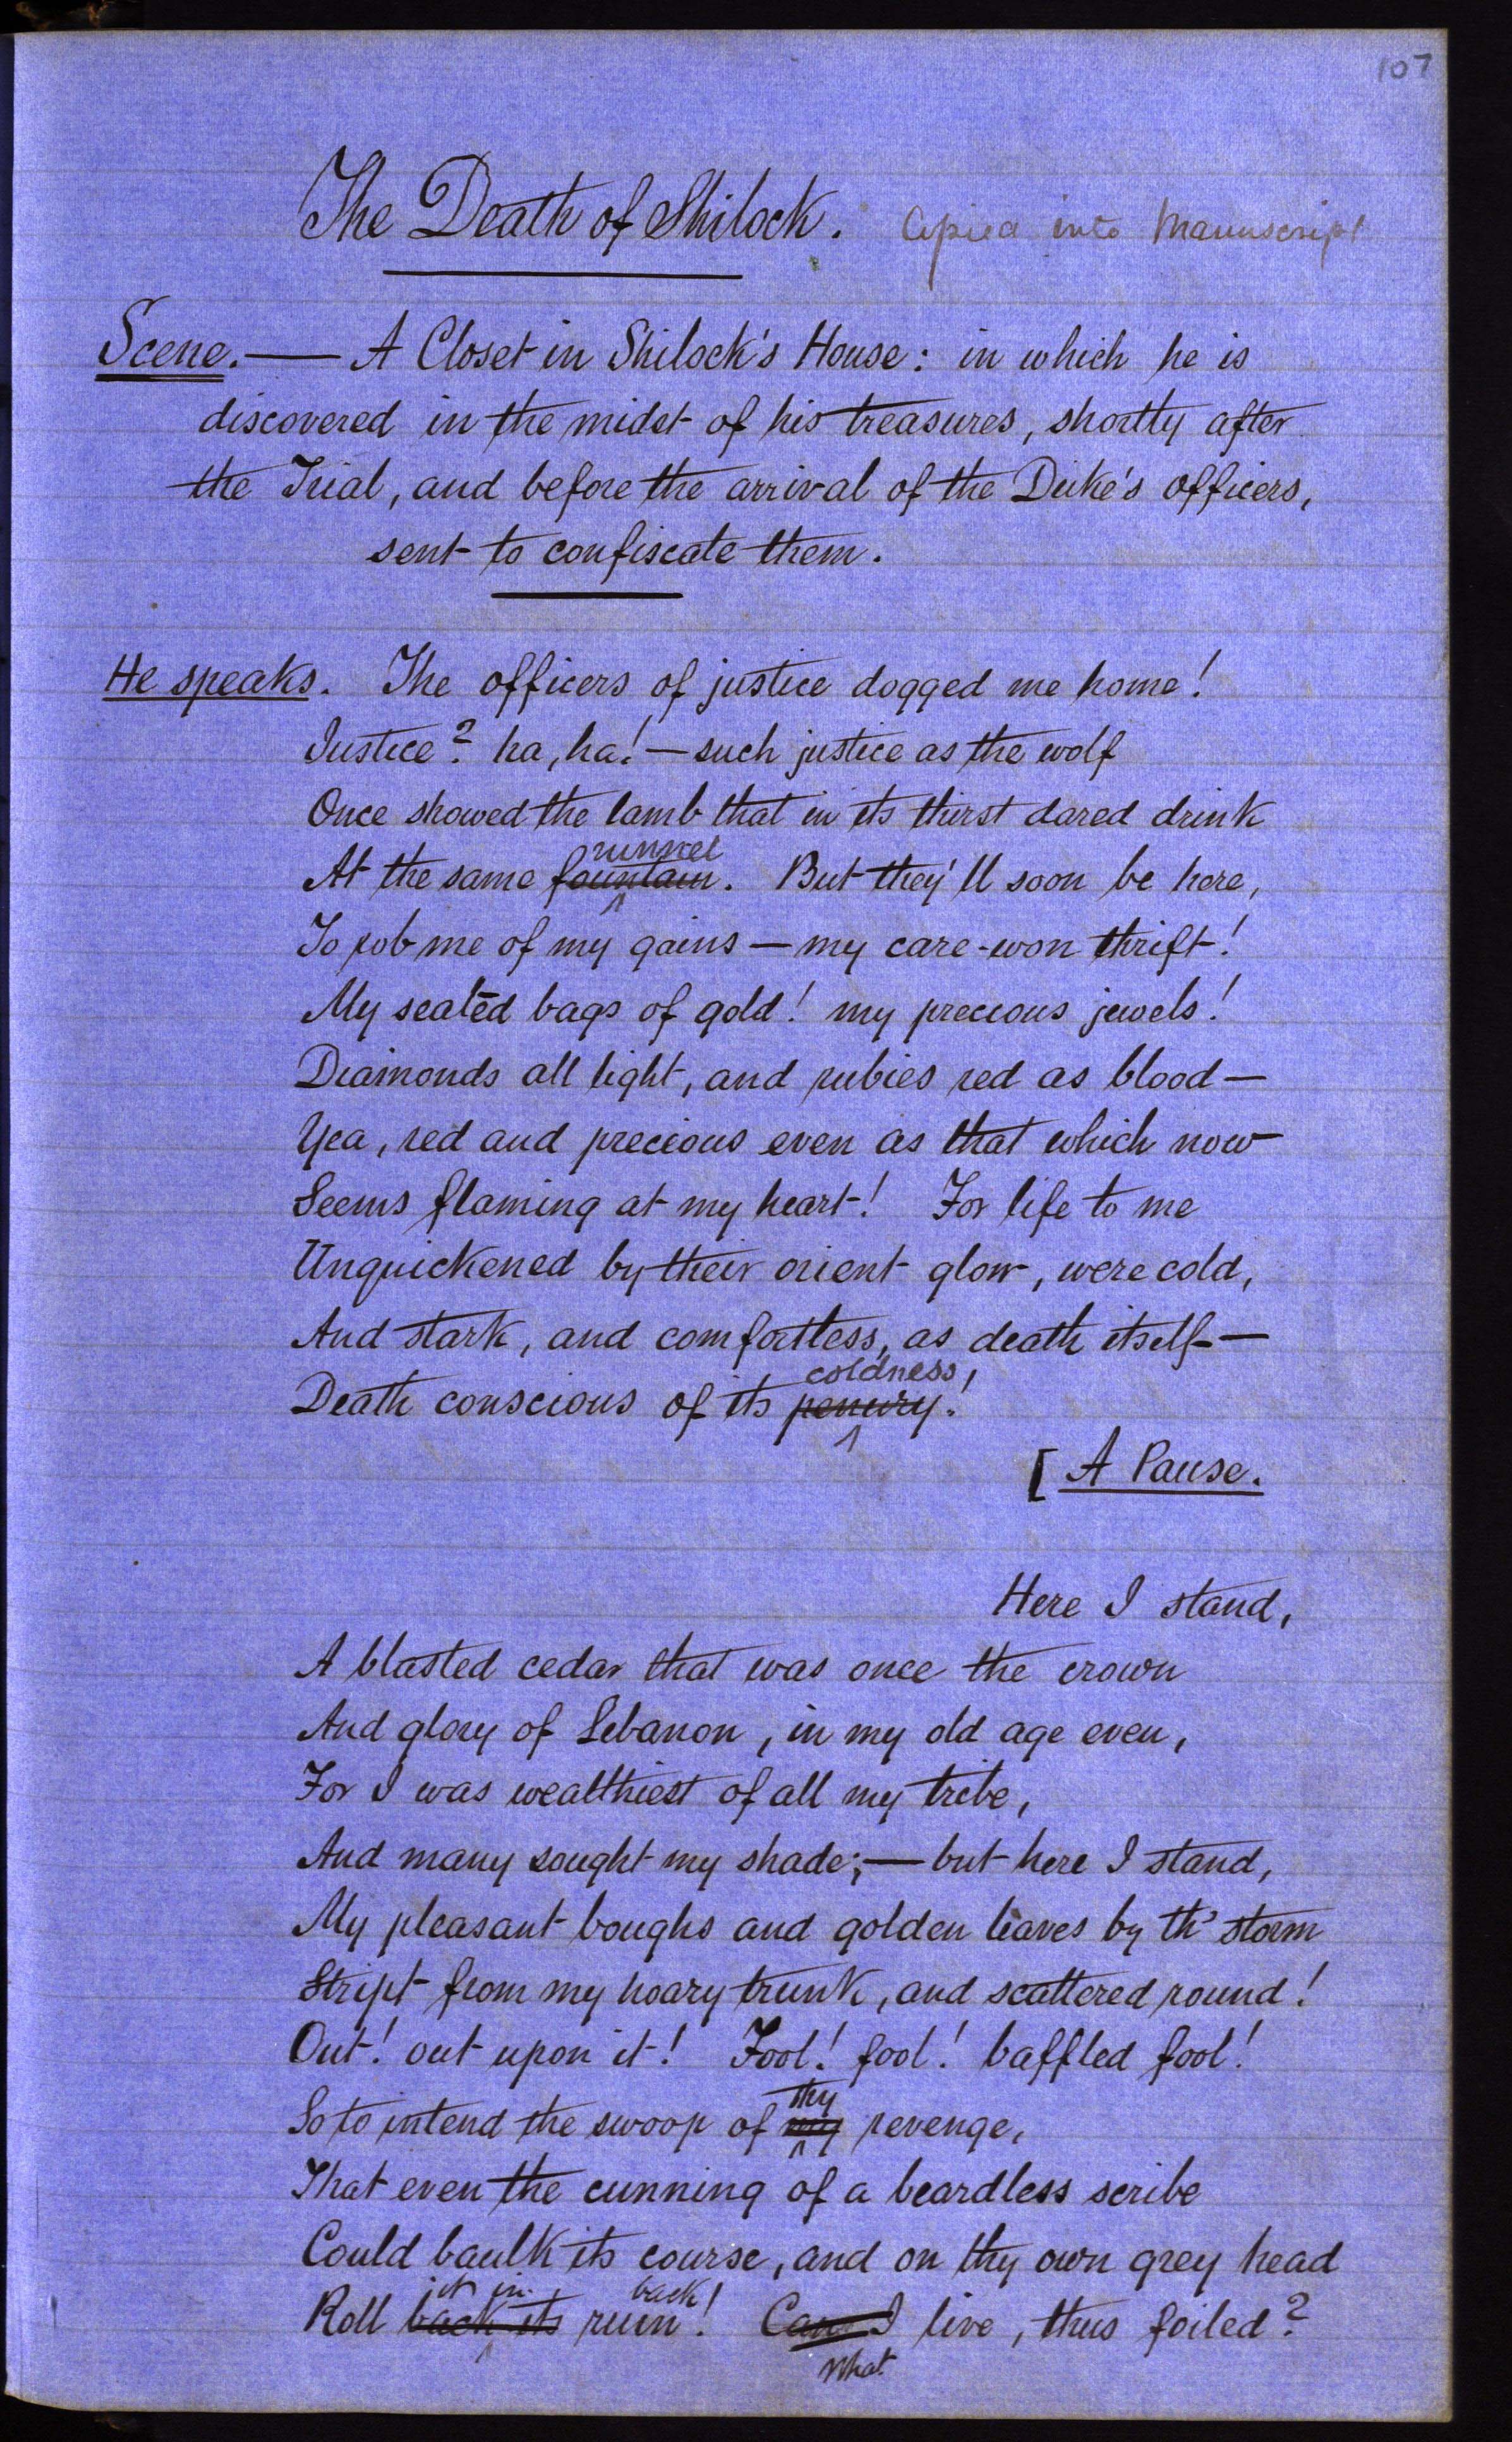 107
The Death of Shilock. Copied into Manuscript
Scene.— A Closet in Shilock's House: in which he is
discovered in the midst of his treasures, shortly after
the Trial, and before the arrival of the Duke's officers,
sent to confiscate them.
He speaks. The officers of justice dogged me home!
Justice? ha, ha!—such justice as the wolf
Once showed the lamb that in its thirst dared drink
runnel
At the same fountain. But they'll soon be here,
To rob me of my gains—my care-won thrift!
My sealèd bags of gold! my precious jewels!
Diamonds all light, and rubies red as blood—
Yea, red and precious even as that which now
Seems flaming at my heart! For life to me
Unquickened by their orient glow, were cold,
And stark, and comfortless, as death itself—
coldness,
Death conscious of its penury!
[A Pause.
Here I stand,
A blasted cedar that was once the crown
And glory of Lebanon, in my old age even,
For I was wealthiest of all my tribe,
And many sought my shade;—but here I stand,
My pleasant boughs and golden leaves by th' storm
Stript from my hoary trunk, and scattered round!
Out! out upon it! Fool! fool! baffled fool!
thy
So to intend the swoop of my revenge,
That even the cunning of a beardless scribe
Could baulk its course, and on thy own grey head
it in back!
Roll back its ruin! Can I live, thus foiled?
What